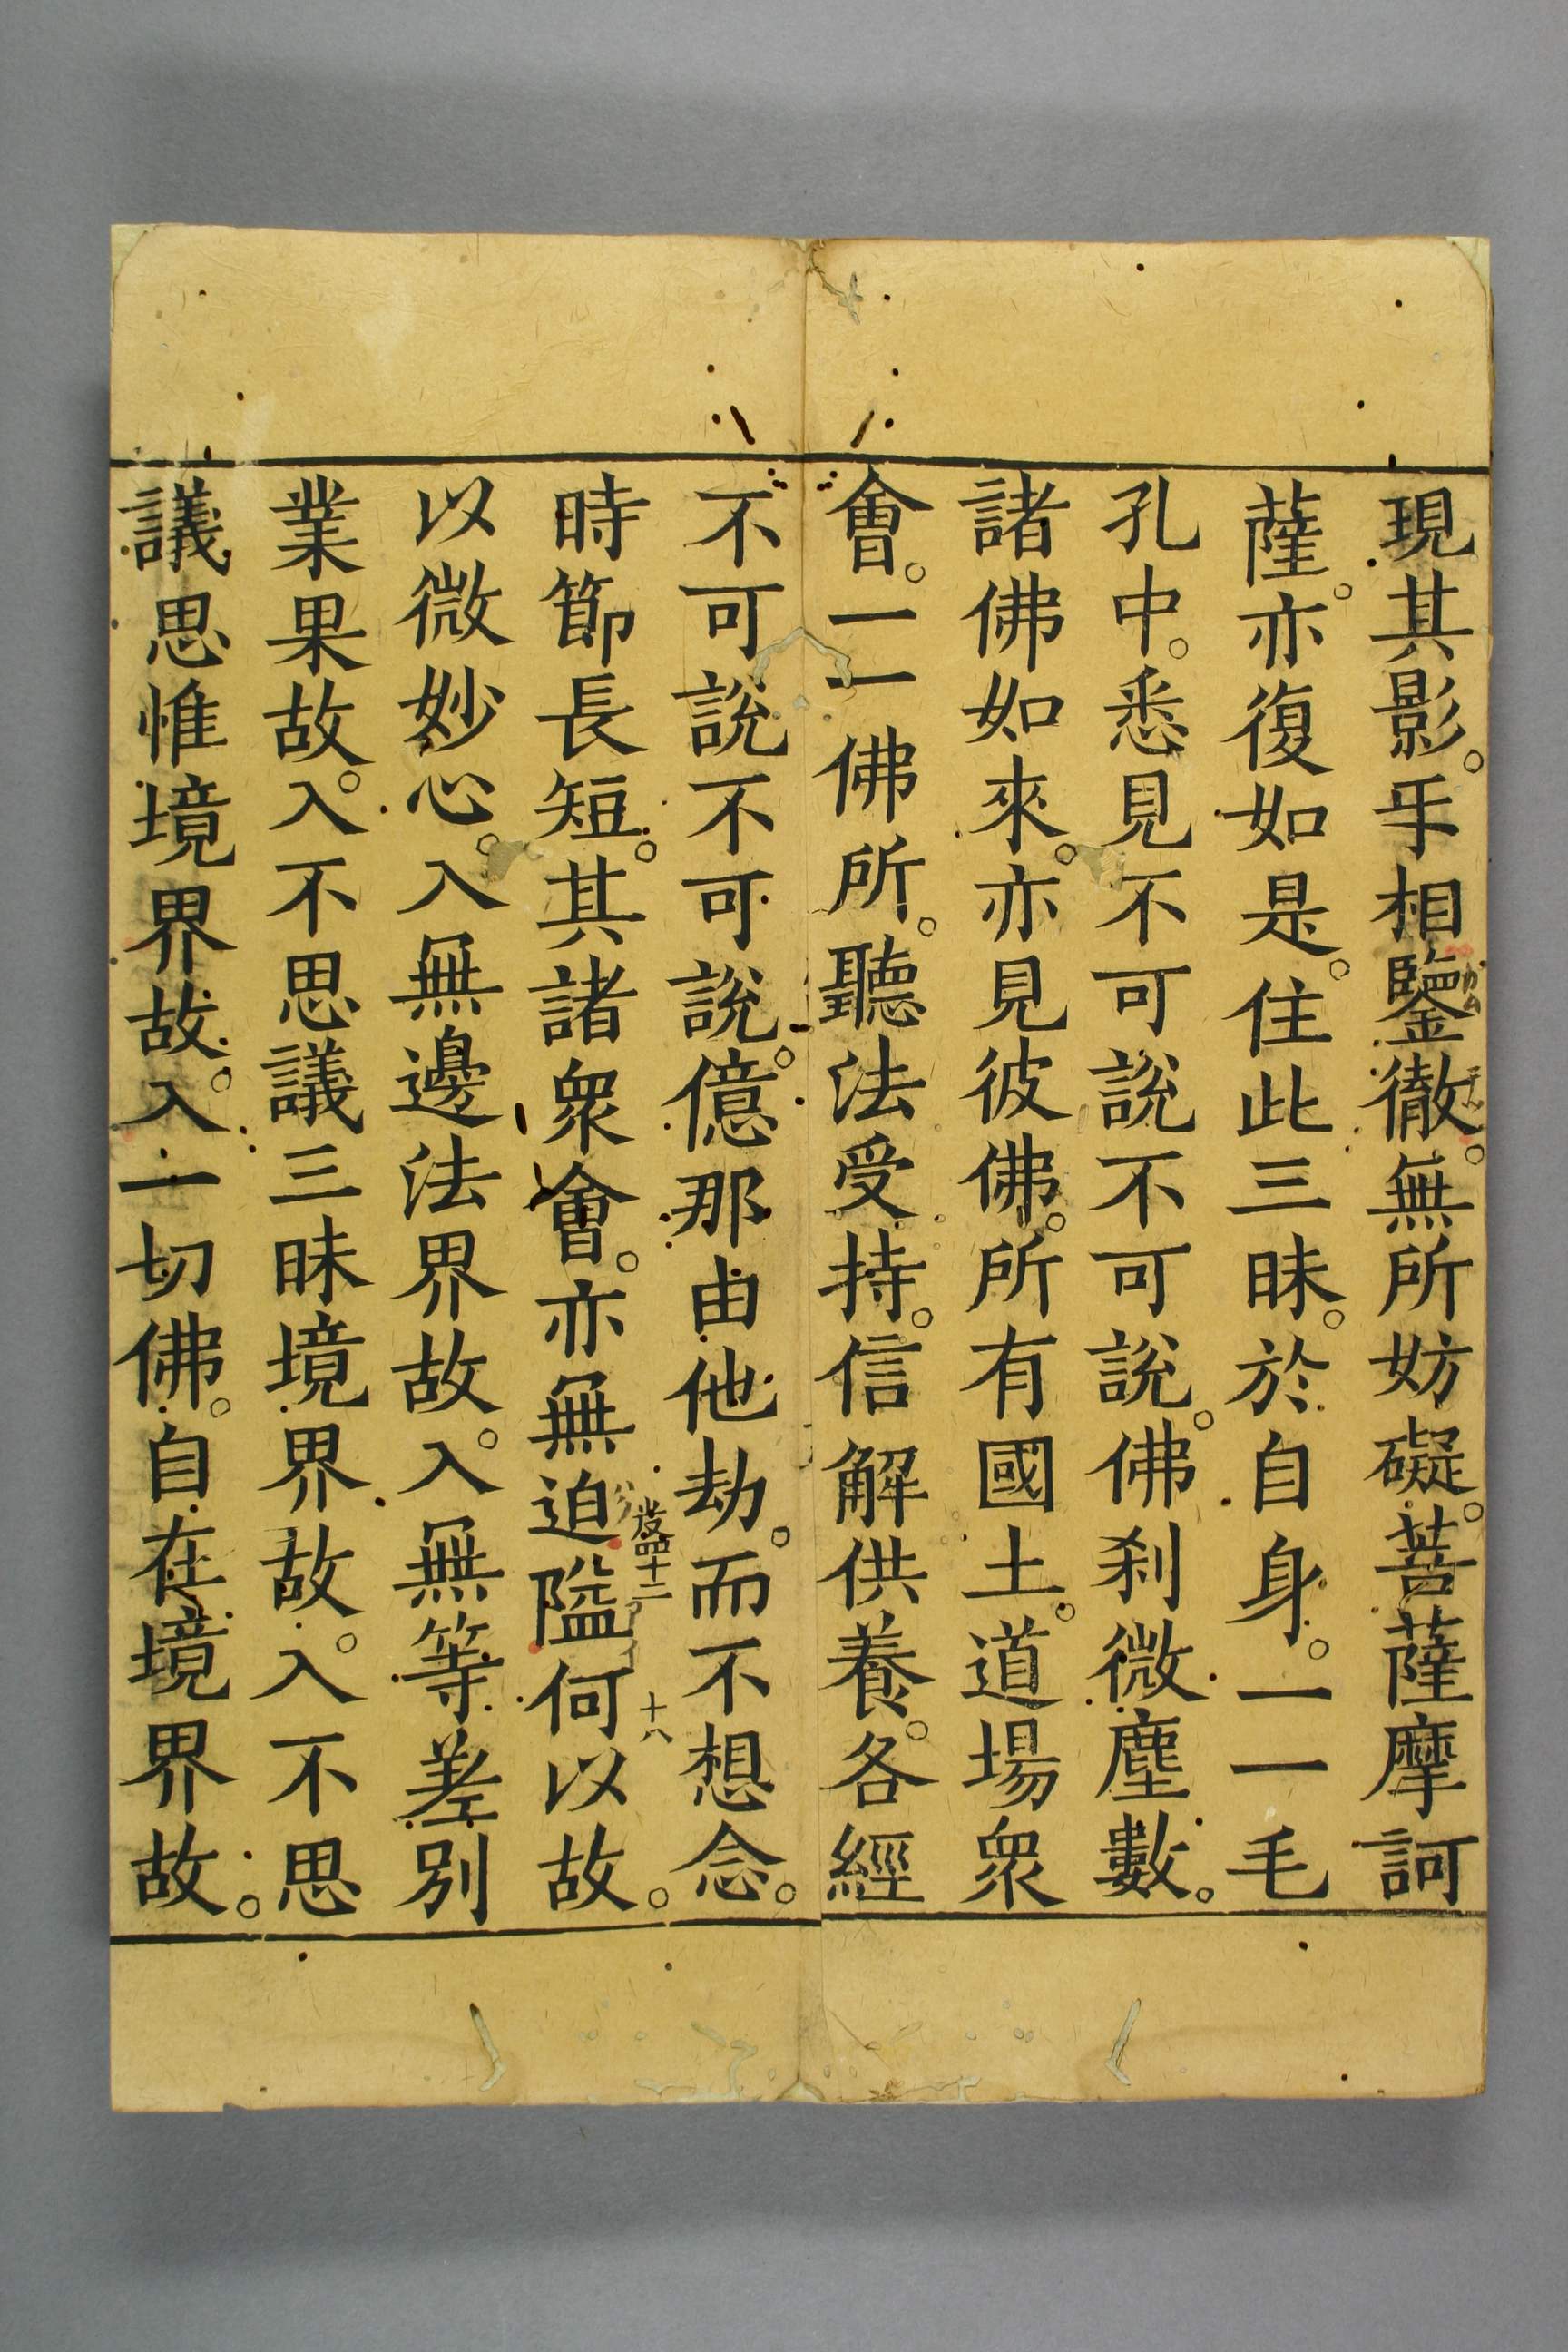 現其影。㸦相鑒徹。無所妨礙。菩薩摩訶
薩。亦復如是。住此三昧。於自身。一一毛
孔中。悉見不可說不可說。佛刹微塵數。
諸佛如來。亦見彼佛。所有國土。道場衆
會。一一佛所。聽法受持。信解供養。各經
不可說不可說。億那由他劫。而不想念。
時節長短。其諸衆會。亦無迫隘何以故。
十八
以微妙心。入無邊法界故。入無等差別
業果故。入不思議三昧境界故。入不思
議思惟境界故。入一切佛。自在境界故。